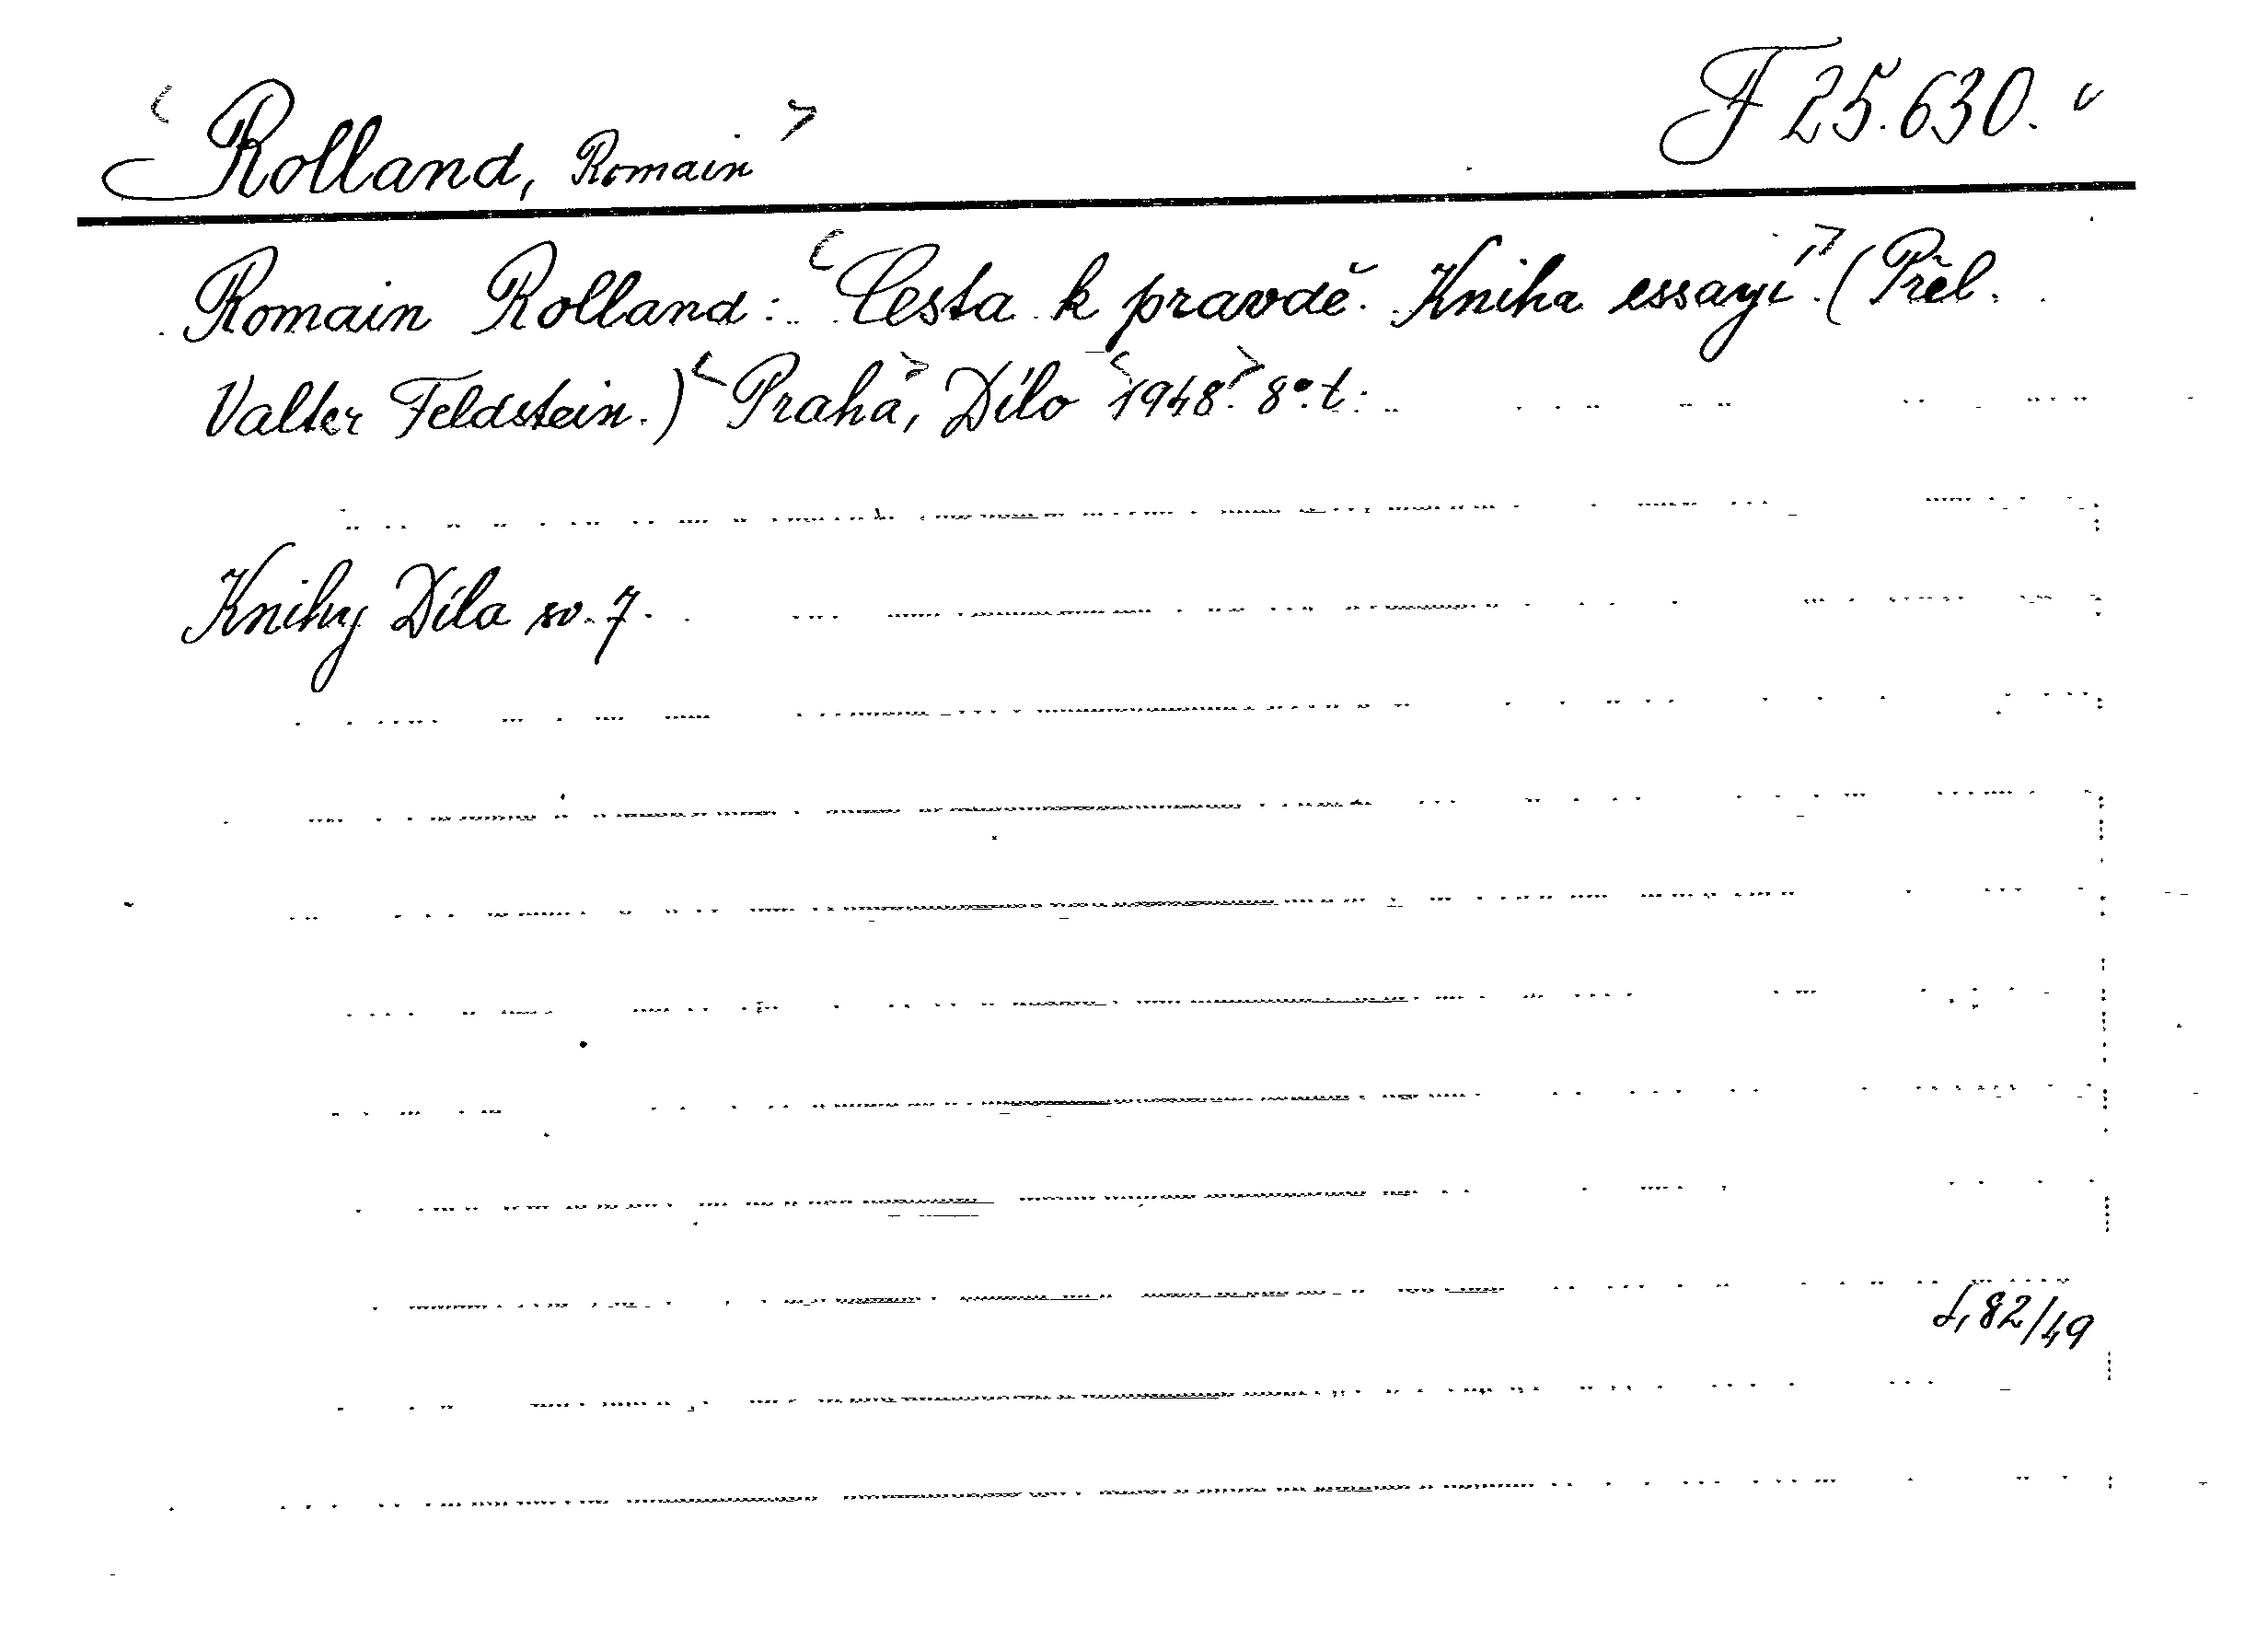 <Rolland, Romain> F 25.630.
Romain Rolland: <Cesta k pravdě. Kniha essayí.> (Přel.
Valter Feldstein.) <Praha>, Dílo <1948.> 8°. t.
Knihy Díla sv. 7.
82/49